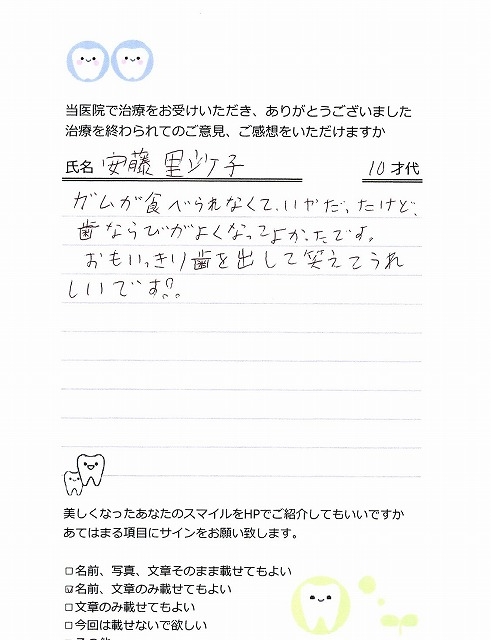 当医院で治療をお受けいただき、ありがとうございました
治療を終わられてのご意見、ご感想をいただけますか
氏名 安藤 里沙子 10才代
ガムが食べられなくて、いやだったけど、
歯ならびがよくなってよかったです。
おもいっきり歯を出して笑えてうれ
しいです!!
美しくなったあなたのスマイルをHPでご紹介してもいいですか
あてはまる項目にサインをお願い致します。
□名前、写真、文章そのまま載せてもよい
☑名前、文章のみ載せてもよい
□文章のみ載せてもよい
□今回は載せないで欲しい